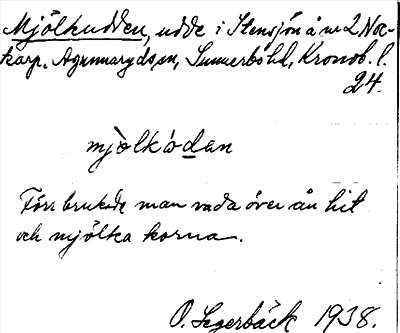 Mjölkudden, udde i Stensjön å nr 2 Noc-
karp, Agunnaryds sn, Sunnerbo hd, Kronob. l.
24.
mjòlkòdan
Förr brukade man vada över ån hit
och mjölka korna.
O. Segerbäck 1938.